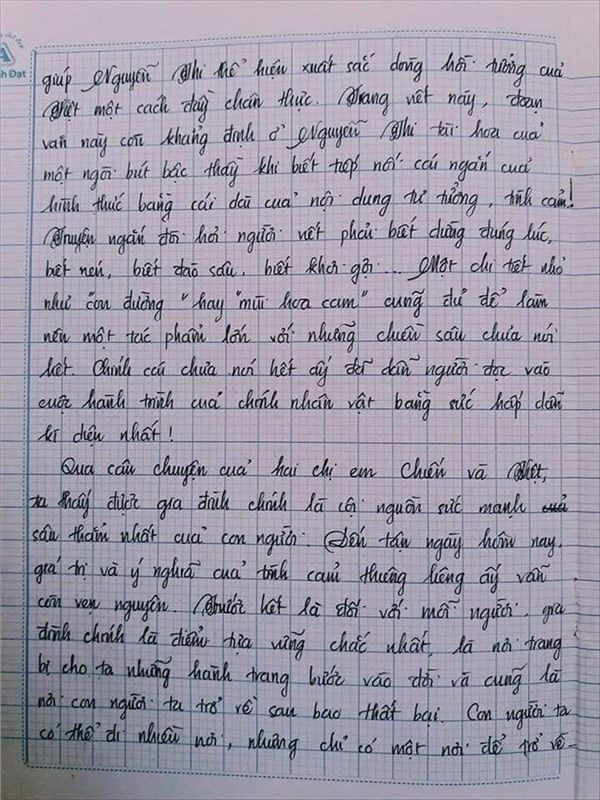 nh Đạt
giúp Nguyễn Thi thể hiện xuất sắc dòng hồi tưởng của
Việt một cách đầy chân thực. Trang viết này, đoạn
văn này còn khẳng định ở Nguyễn Thi tài hoa của
một ngòi bút bậc thầy khi biết tiếp nối cái ngắn của
hình thức bằng cái dài của nội dung tư tưởng, tình cảm!
Truyện ngắn đòi hỏi người viết phải biết dừng đúng lúc,
biết nén, biết đào sâu, biết khơi gợi... Một chi tiết nhỏ
như "con đường" hay "mùi hoa cam" cũng đủ để làm
nên một tác phẩm lớn với những chiều sâu chưa nói
hết. Chính cái chưa nói hết ấy đã dẫn người đọc vào
cuộc hành trình của chính nhân vật bằng sức hấp dẫn
kì diệu nhất!
Qua câu chuyện của hai chị em Chiến và Việt,
ta thấy được gia đình chính là cội nguồn sức mạnh
sâu thẳm nhất của con người. Đến tận ngày hôm nay,
giá trị và ý nghĩa của tình cảm thiêng liêng ấy vẫn
còn vẹn nguyên. Trước hết là đối với mỗi người, gia
đình chính là điểm tựa vững chắc nhất, là nơi trang
bị cho ta những hành trang bước vào đời và cũng là
nơi con người ta trở về sau bao thất bại. Con người ta
có thể đi nhiều nơi, nhưng chỉ có một nơi để trở về -